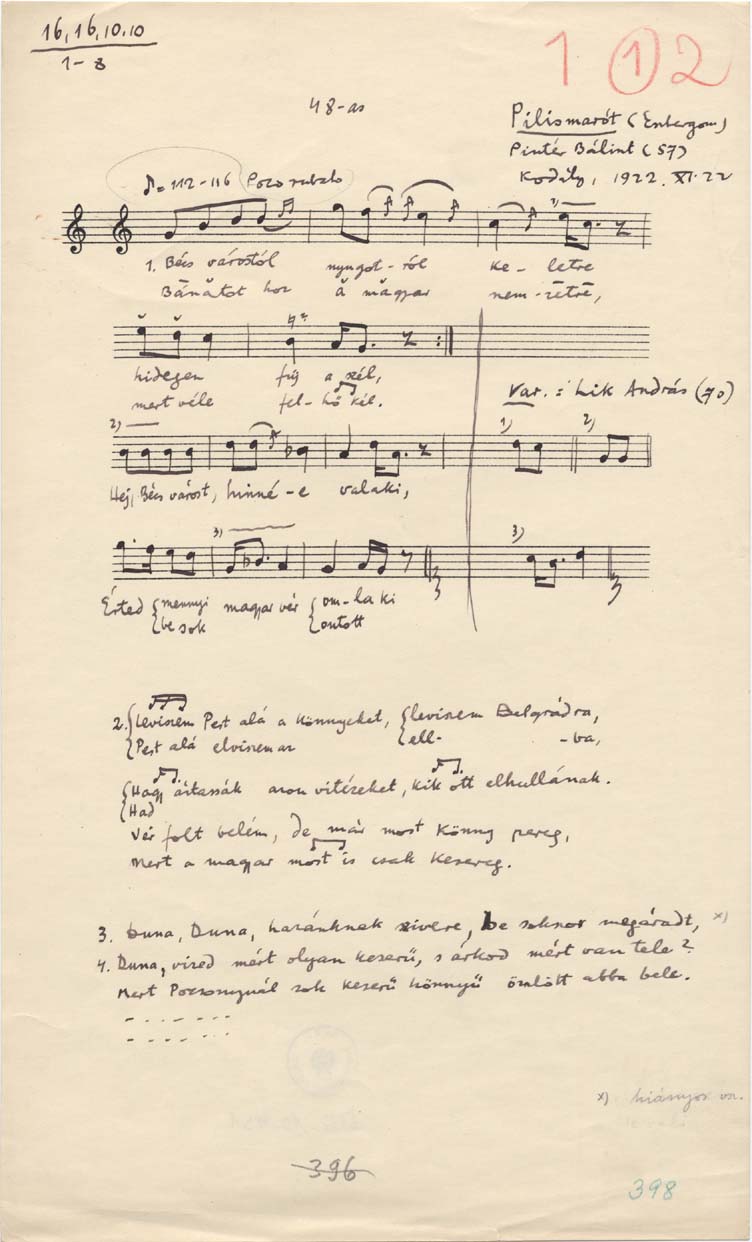 16,16,10.10
1-8
1 1 2
48-as
Pilismarót (Esztergom)
Pintér Bálint (57)
Kodály, 1922. XI. 22
♪= 112-116 Poco rubato
3)
1. Bécs várostól nyugot-ról ke-letre
Bánatot hoz a magyar nem-zetre,
hidegen fúj a szél,
mert véle fel-hő kél.
Var.: Lik András (70)
2) 1) 2)
Hej, Bécs várost, hinné-e valaki,
3) 3)
Érted mennyi magyar vér om-la ki
be sok ontott
2. Leviszem Pest alá a könnyeket, leviszem Belgrádra,
Pest alá elviszem az ell- -ba,
Hagy áztassák azon vitézeket, kik ott elhullának.
Had
Vér folt belém, de már most könny pereg,
Mert a magyar most is csak kesereg.
3. Duna, Duna, hazánknak szivere, be sokszor megáradt, x)
4. Duna, vized mért olyan keserű, s árkod mért van tele?
Mert Pozsonynál sok keserű könnyű ömlött abba bele.
x) hiányos vsz.
396
398